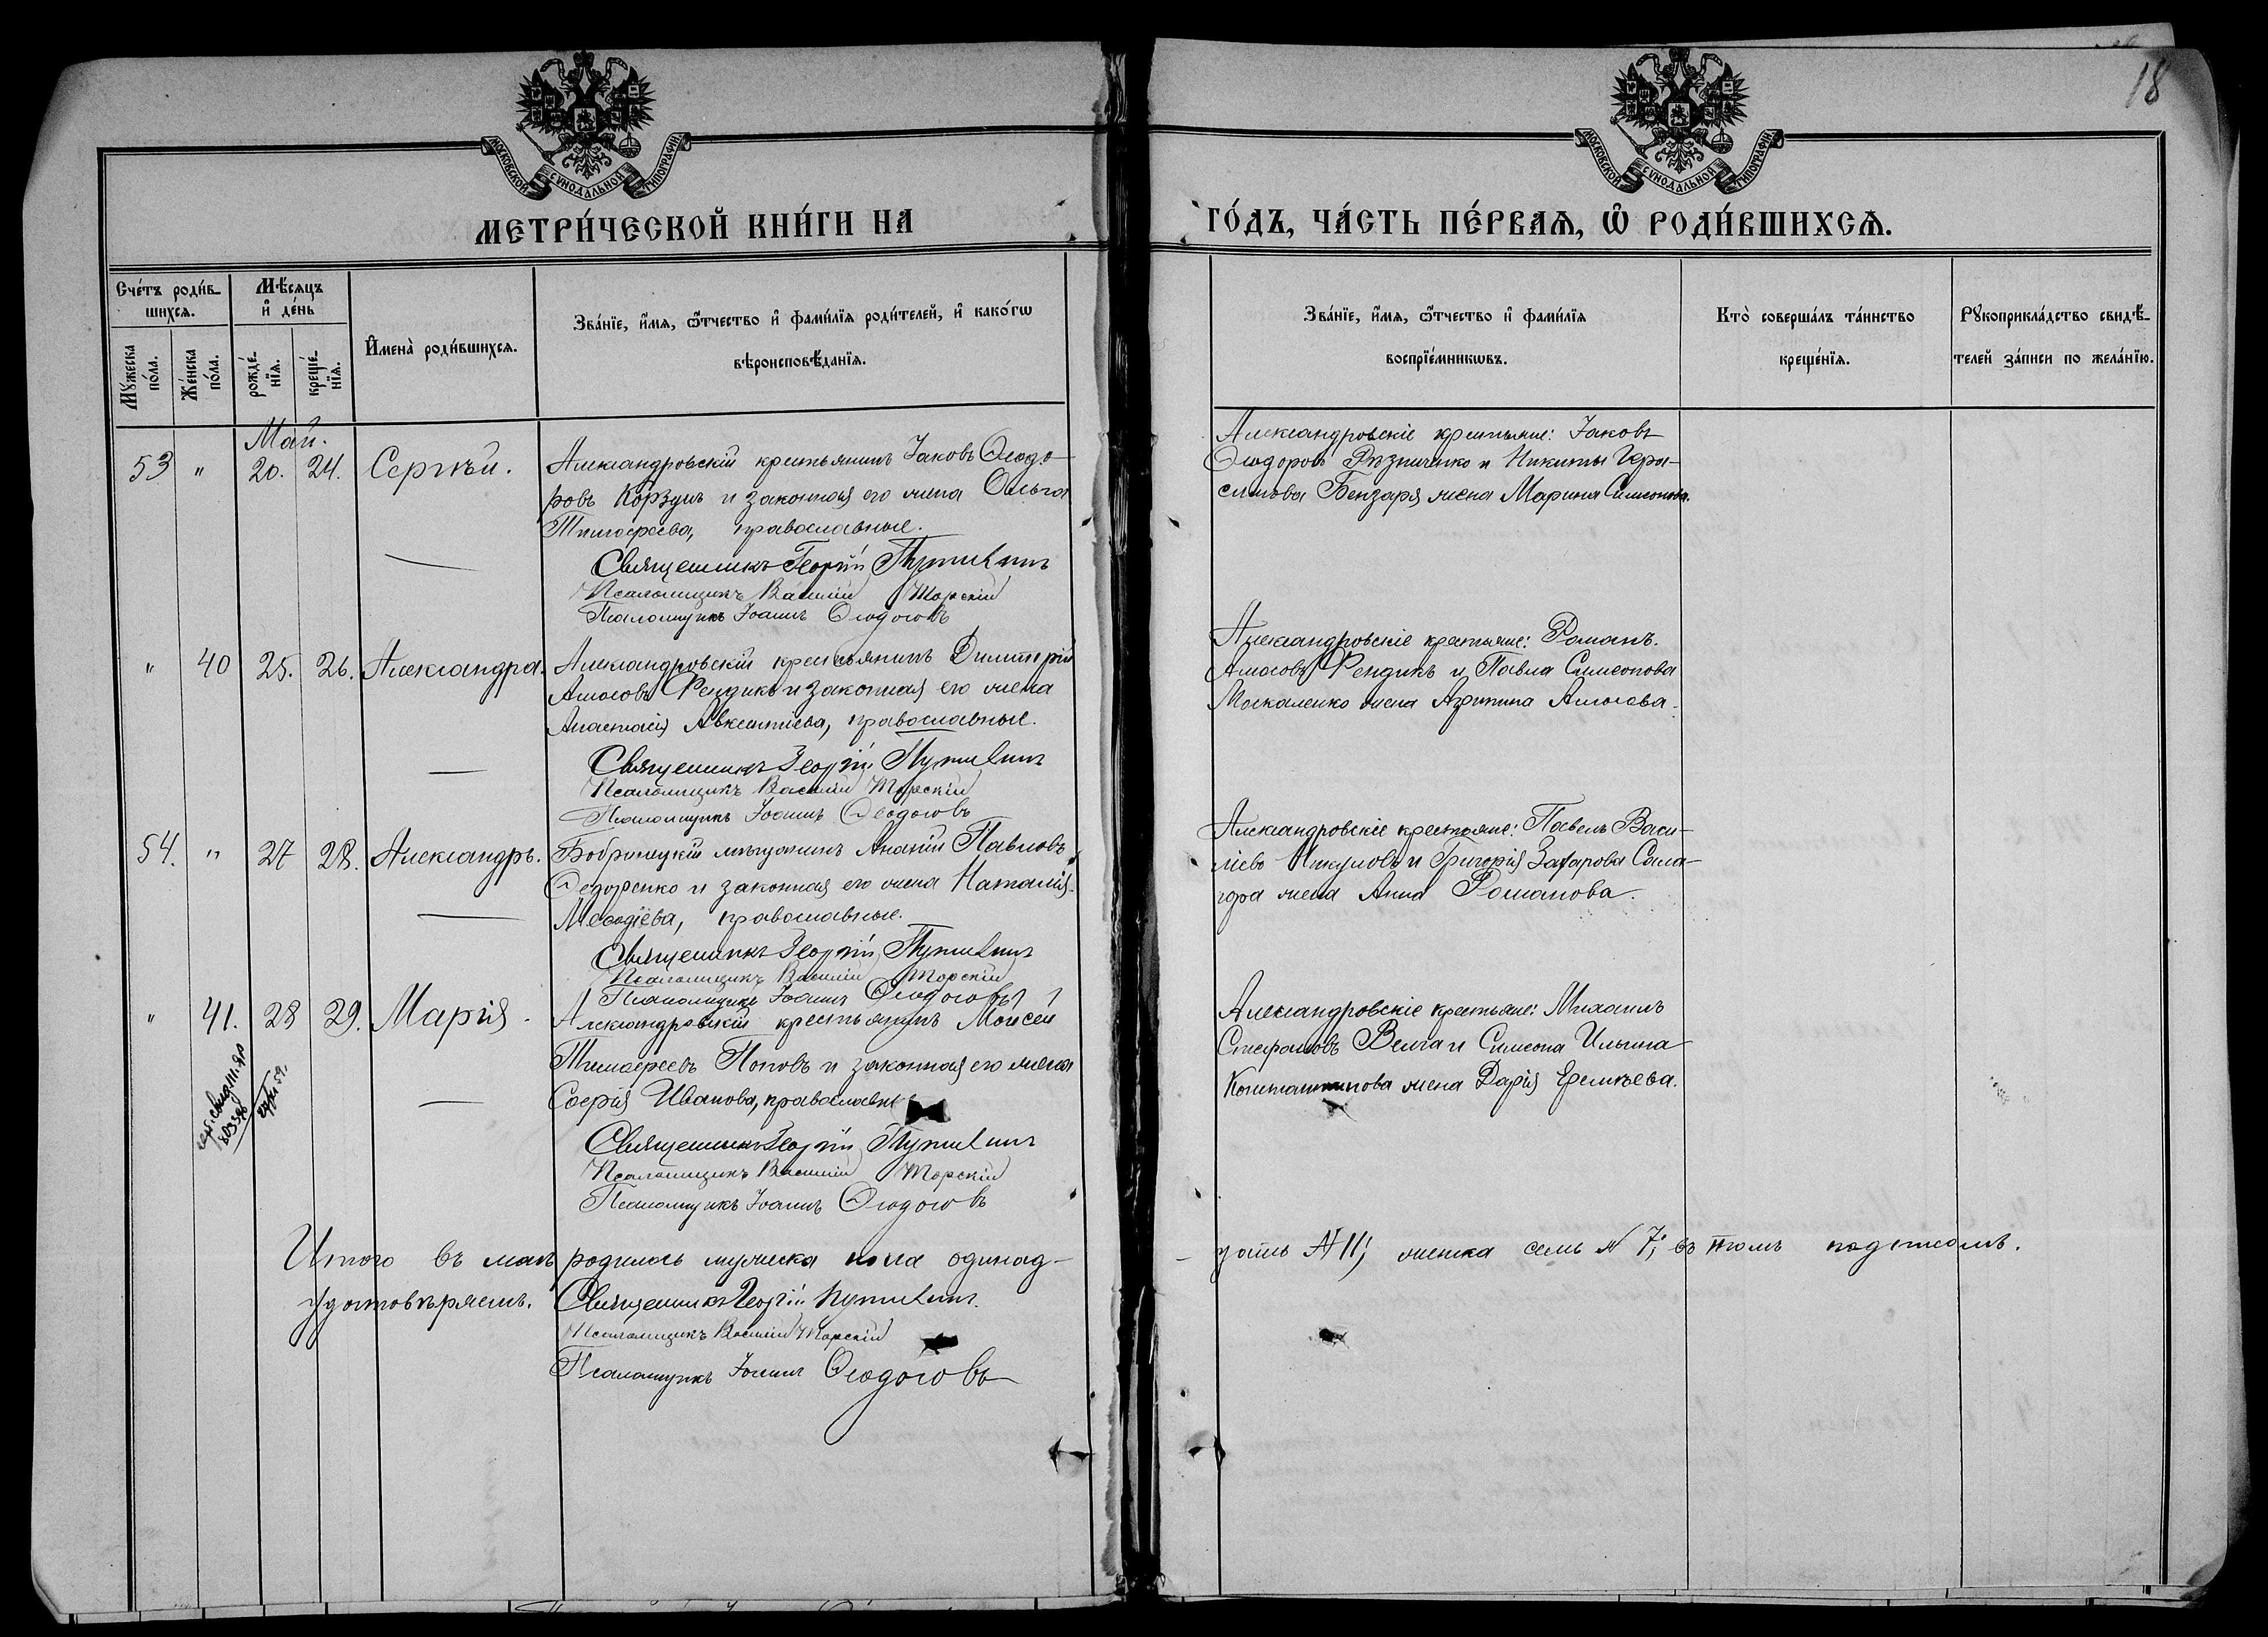 18
МОСКОВСКОЙ СѴНОДАЛЬНОЙ ТИПОГРАФІИ
МОСКОВСКОЙ СѴНОДАЛЬНОЙ ТИПОГРАФІИ
МЕТРИ́ЧЕСКОЙ КНИ́ГИ НА
ГО́ДЪ, ЧА́СТЬ ПЕ́РВАѦ, Ѽ РОДИ́ВШИХСѦ.
Сче́тъ роди́в-
шихсѧ.
Мꙋ́жеска по́ла.
Же́нска по́ла.
Мѣ́сѧцъ
и҆ де́нь
рожде́-
нїѧ.
креще́-
нїѧ.
И҆мена̀ роди́вшихсѧ.
Зва́нїе, и҆́мѧ, ѻ҆́тчество и҆ фами́лїѧ роди́телей, и҆ како́гѡ
вѣроисповѣ́данїѧ.
Зва́нїе, и҆́мѧ, ѻ҆́тчество и҆ фами́лїѧ
воспрїе́мникѡвъ.
Кто̀ соверша́лъ та́инство
креще́нїѧ.
Рꙋкоприкла́дство свидѣ́-
телей за́писи по жела́нїю.
Май.
53 " 20. 24. Сергѣй.
Александровскій крестьянинъ Іаковъ Ѳеодо-
ровъ Корзунъ и законная его жена Ольга
Тимоѳеева, православные.
Священникъ Георгій Путилинъ
Псаломщикъ Василій Торскій
Псаломщикъ Іоаннъ Ѳеодоговъ
Александровскіе крестьяне: Іаковъ
Ѳеодоровъ Рѣзниченко и Никиты Гера-
симова Бензаря жена Марина Симеонова.
" 40 25. 26. Александра.
Александровскій крестьянинъ Димитрій
Амосовъ Рендикъ и законная его жена
Анастасія Авксентіева, православные.
Священникъ Георгій Путилинъ
Псаломщикъ Василій Торскій
Псаломщикъ Іоаннъ Ѳеодоговъ
Александровскіе крестьяне: Романъ.
Амосовъ Рендикъ и Павла Симеонова
Москаленко жена Агрипина Амосова.
54. " 27 28. Александръ.
Бобринецкій мѣщанинъ Ананій Павловъ
Ѳедоренко и законная его жена Наталія
Меѳодіева, православные.
Священникъ Георгій Путилинъ
Псаломщикъ Василій Торскій
Псаломщикъ Іоаннъ Ѳеодоговъ
Александровскіе крестьяне: Павелъ Васи-
ліевъ Никуловъ и Григорія Захарова Сала-
гора жена Анна Романова.
" 41. 28 29. Марія.
Александровскій крестьянинъ Моисей
Тимоѳеевъ Поповъ и законная его жена
Софія Иванова, православн
Священникъ Георгій Путилинъ
Псаломщикъ Василій Торскій
Псаломщикъ Іоаннъ Ѳеодоговъ
Александровскіе крестьяне: Михаилъ
Стефановъ Велча и Симеона Ильина
Константинова жена Дарія Еремѣева.
Итого въ маѣ родилось мужеска пола одинад-
цать № 11; женска семь № 7; въ томъ подписомъ.
удостовѣряемъ. Священникъ Георгій Путилинъ.
Псаломщикъ Василій Торскій
Псаломщикъ Іоаннъ Ѳеодоговъ